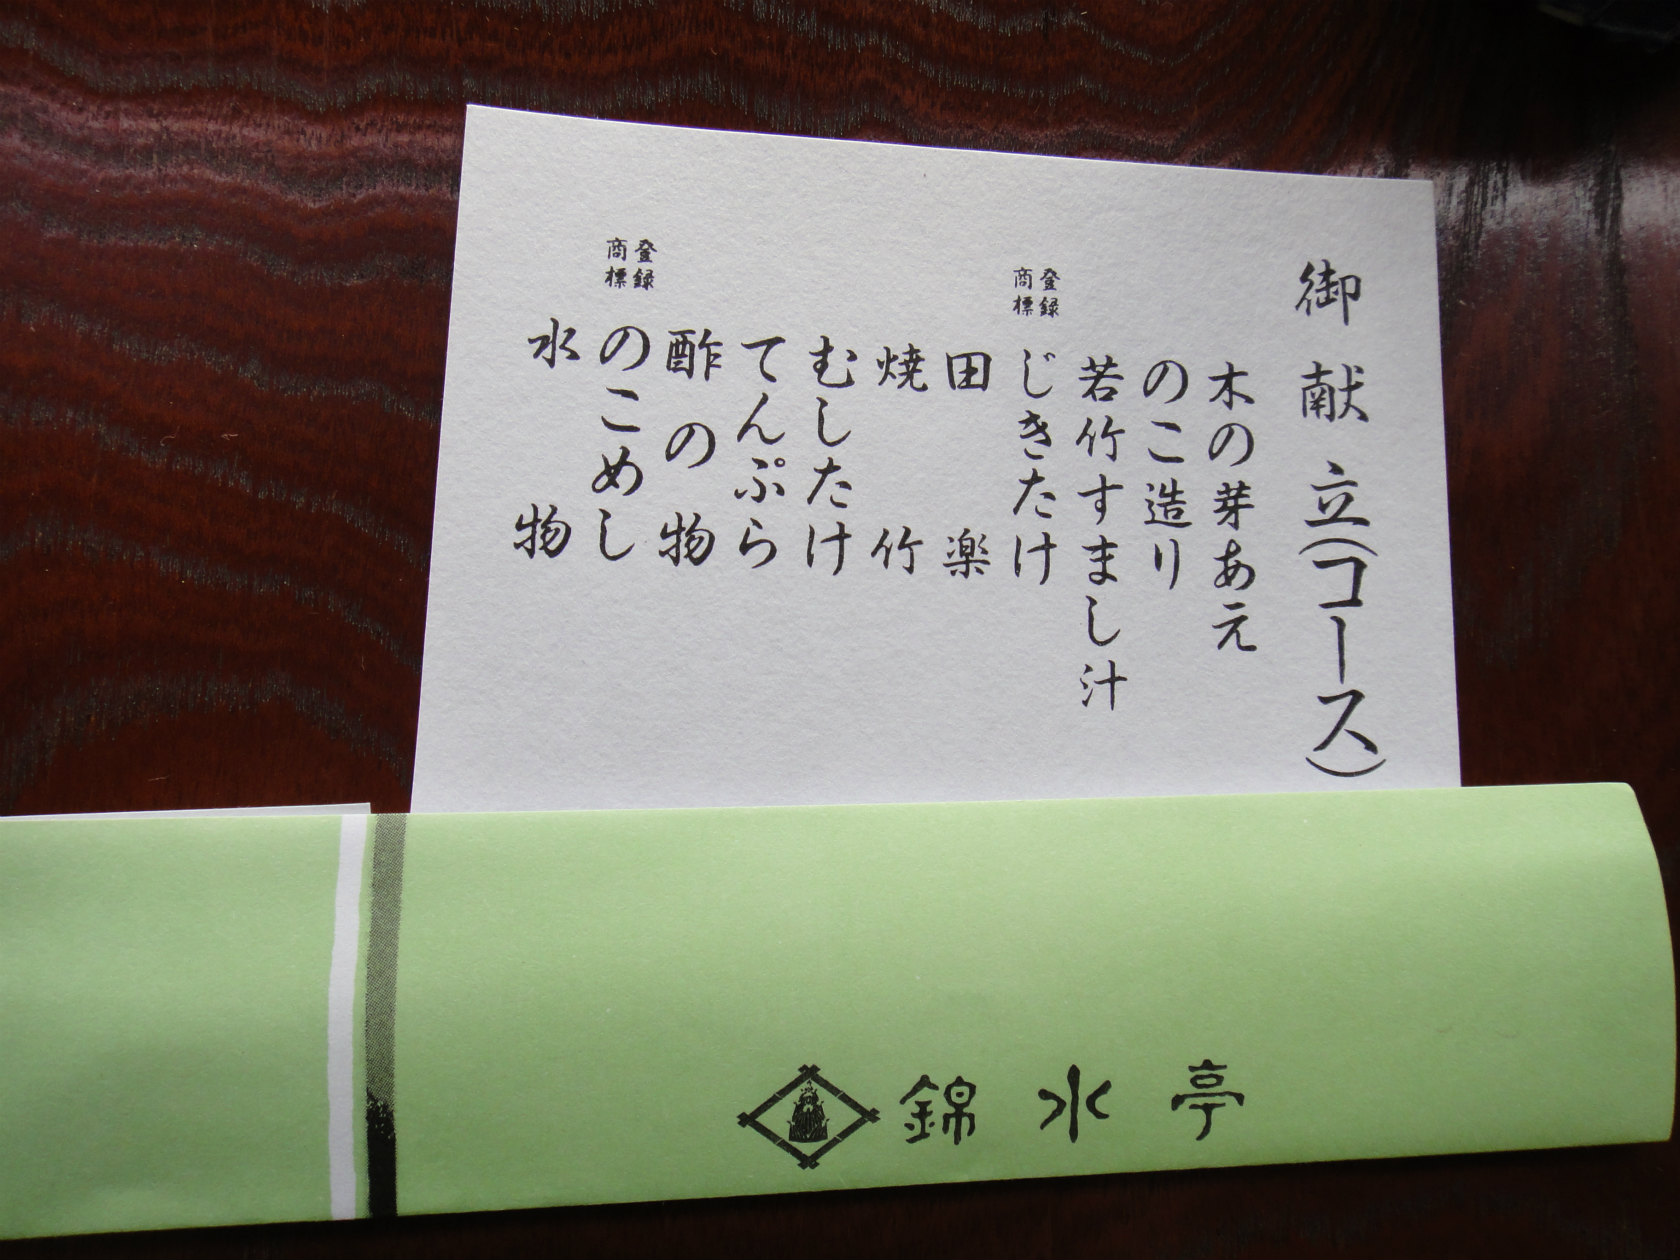 御献立(コース)
木の芽あえ
のこ造り
若竹すまし汁
登録商標
じきたけ
田楽
焼竹
むしたけ
てんぷら
酢の物
登録商標
のこめし
水物
錦水亭